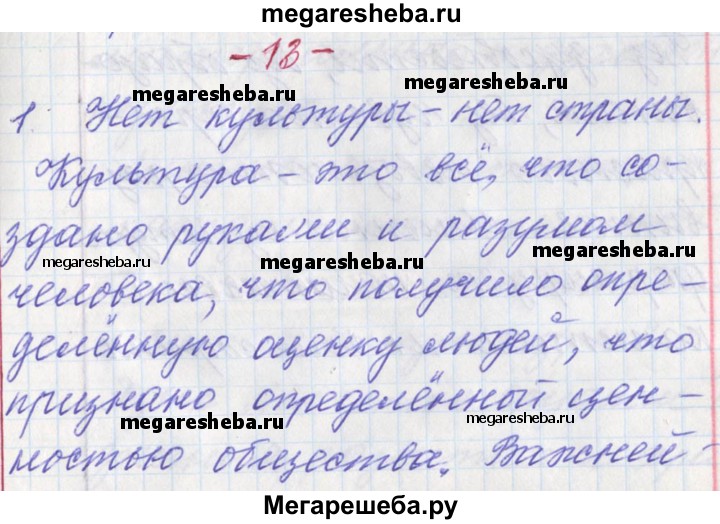 megaresheba.ru
- 13 -
megaresheba.ru
megaresheba.ru
1. Нет культуры - нет страны.
Культура - это всё, что со-
здано руками и разумом
megaresheba.ru
megaresheba.ru
megaresheba.ru
человека, что получило опре-
делённую оценку людей, что
признано определённый цен-
megaresheba.ru
megaresheba.ru
ностью общества. Важней-
Мегарешеба.ру